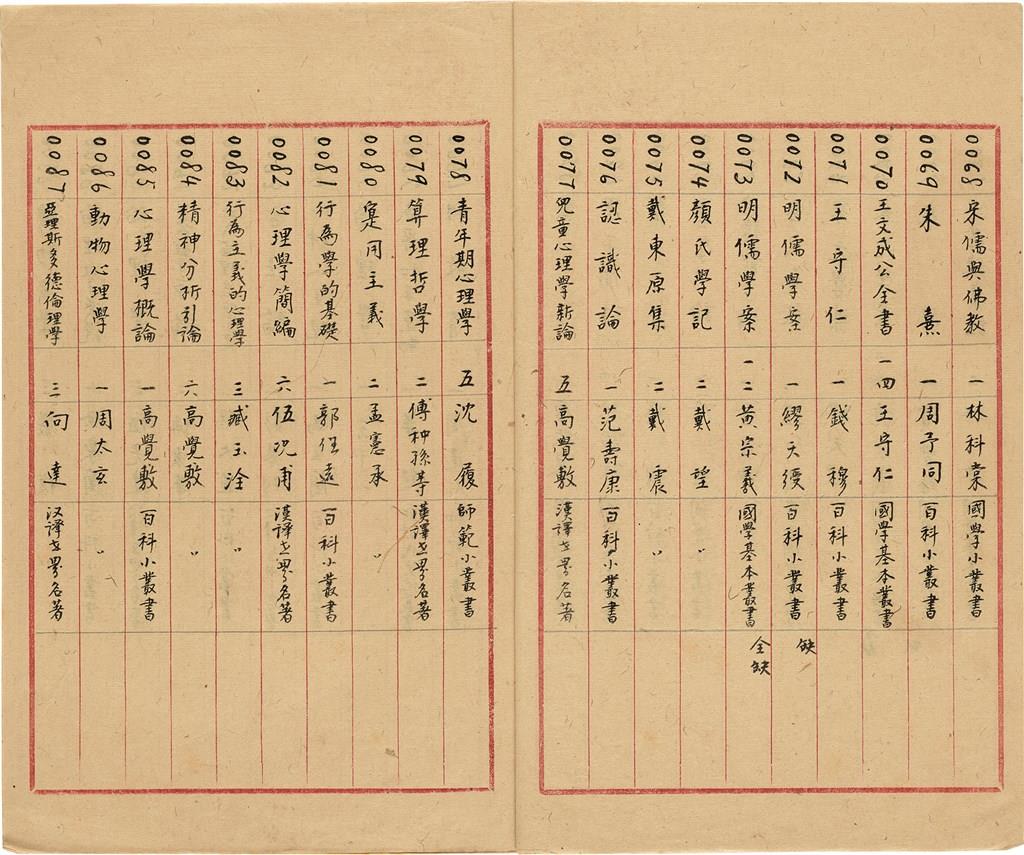 0068 宋儒與佛教 一 林科棠 國學小叢書
0069 朱熹 一 周予同 百科小叢書
0070 王文成公全書 一四 王守仁 國學基本叢書
0071 王守仁 一 錢穆 百科小叢書
0072 明儒學案 一 繆天綬 百科小叢書 缺
0073 明儒學案 一二 黃宗羲 國學基本叢書 全缺
0074 顏氏學記 二 戴望 〃
0075 戴東原集 二 戴震 〃
0076 認識論 一 范壽康 百科小叢書
0077 兒童心理學新論 五 高覺敷 漢譯世界名著
0078 青年期心理學 五 沈履 師範小叢書
0079 算理哲學 二 傅种孫等 漢譯世界名著
0080 寔用主義 二 孟憲承 〃
0081 行為學的基礎 一 郭任遠 百科小叢書
0082 心理學簡編 六 伍况甫 漢譯世界名著
0083 行為主義的心理學 三 臧玉淦 〃
0084 精神分析引論 六 高覺敷 〃
0085 心理學概論 一 高覺敷 百科小叢書
0086 動物心理學 一 周太玄 〃
0087 亞理斯多德倫理學 三 向達 汉譯世界名著